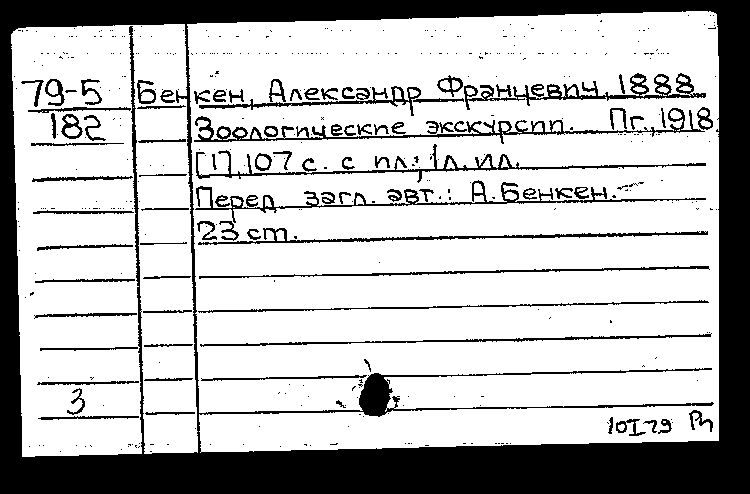 79-5 Бенкен, Александр Францевич, 1888
182 Зоологические экскурсии. Пг., 1918
[1], 107 с. с ил.; 1л. ил.
Перед загл. авт.: А. Бенкен.
23 cm.
3
10I79